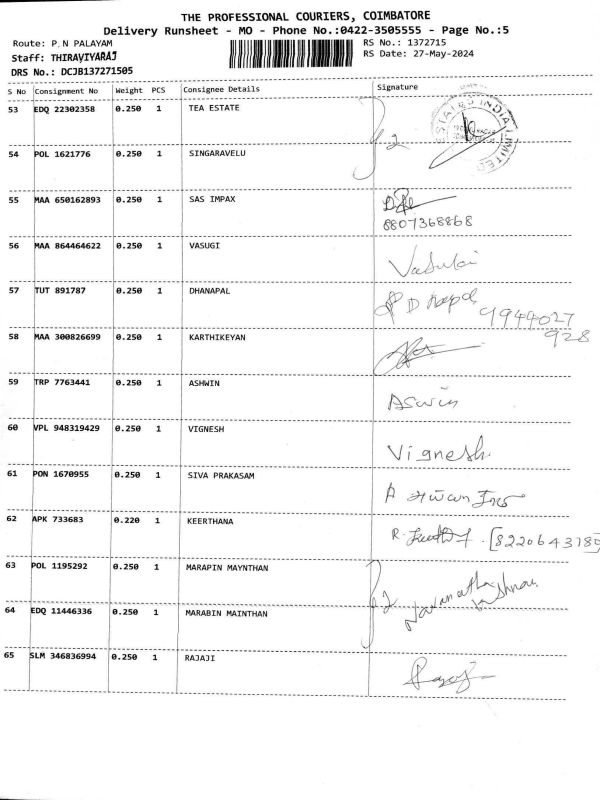 THE PROFESSIONAL COURIERS, COIMBATORE
Delivery Runsheet - MO - Phone No.:0422-3505555 - Page No.:5
Route: P.N PALAYAM
RS No.: 1372715
Staff: THIRAVIYARAJ
RS Date: 27-May-2024
DRS No.: DCJB137271505
S No Consignment No Weight PCS Consignee Details Signature
53 EDQ 22302358 0.250 1 TEA ESTATE
54 POL 1621776 0.250 1 SINGARAVELU
55 MAA 650162893 0.250 1 SAS IMPAX
8807368868
56 MAA 864464622 0.250 1 VASUGI
57 TUT 891787 0.250 1 DHANAPAL
9944027
928
58 MAA 300826699 0.250 1 KARTHIKEYAN
59 TRP 7763441 0.250 1 ASHWIN Aswin
60 VPL 948319429 0.250 1 VIGNESH Vignesh
61 PON 1670955 0.250 1 SIVA PRAKASAM
62 APK 733683 0.220 1 KEERTHANA 8220643180
63 POL 1195292 0.250 1 MARAPIN MAYNTHAN
64 EDQ 11446336 0.250 1 MARABIN MAINTHAN
65 SLM 346836994 0.250 1 RAJAJI